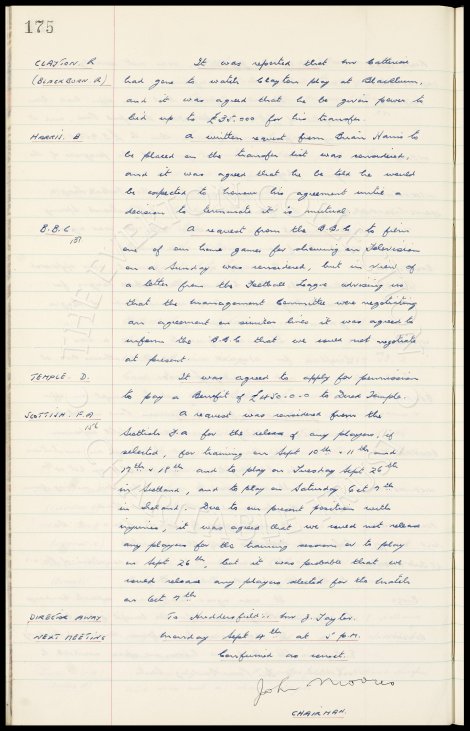 175
CLAYTON R It was reported that Mr Catterick
(BLACKBURN R) had gone to watch Clayton play at Blackburn,
and it was agreed that he be given power to
bid up to £35,000 for his transfer.
HARRIS. B A written request from Brian Harris to
be placed on the transfer list was considered,
and it was agreed that he be told he would
be expected to honour his agreement until a
decision to terminate it is mutual.
B.B.C. A request from the B.B.C to film
one of our home games for showing on Television
on a Sunday was considered, but in view of
a letter from the Football League advising us
that the Management Committee were negotiating
an agreement on similar lines it was agreed to
inform the B.B.C that we could not negotiate
at present.
TEMPLE. D. It was agreed to apply for permission
to pay a Benefit of £450-0-0 to Derek Temple.
SCOTTISH. F.A A request was considered from the
156
Scottish F.A for the release of any players, if
selected, for training on Sept 10th & 11th and
17th & 18th and to play on Tuesday Sept 26th
in Scotland, and to play on Saturday Oct 7th
in Ireland. Due to our present position with
injuries, it was agreed that we could not release
any players for the training sessions or to play
on Sept 26th, but it was probable that we
could release any players selected for the match
on Oct 7th
DIRECTOR AWAY To Huddersfield:- Mr J. Taylor.
NEXT MEETING Monday Sept 4th at 5 P.M.
Confirmed as correct.
John Moores
CHAIRMAN.